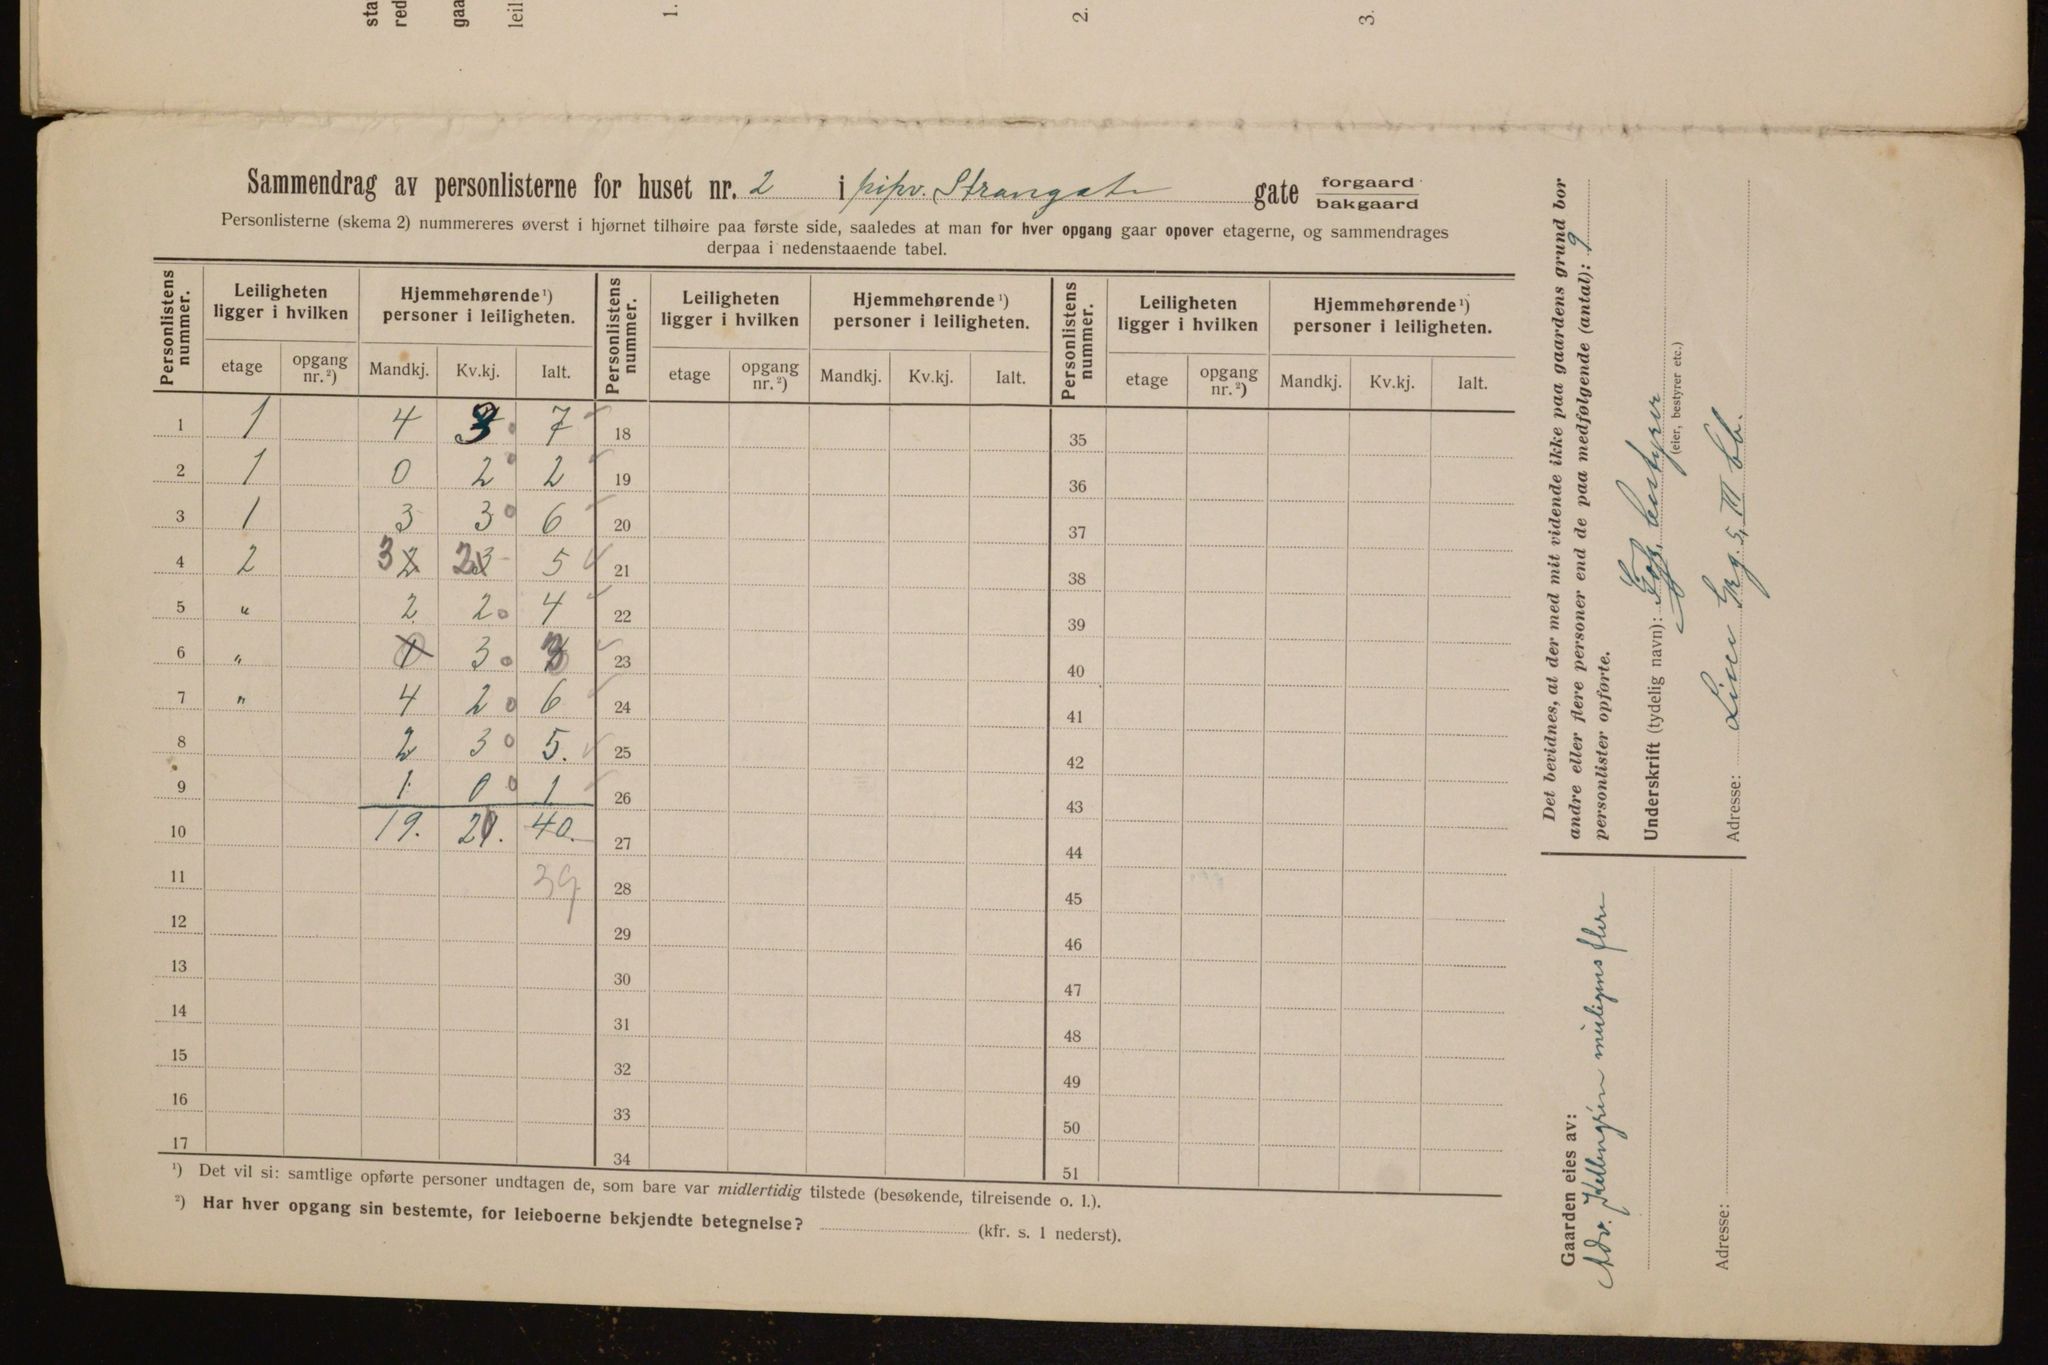 sta
red
gaa
leil
1.
2.
3.
Sammendrag av personlisterne for huset nr. 2 i pipv. Strangate gate forgaard bakgaard
Personlisterne (skema 2) nummereres øverst i hjørnet tilhøire paa første side, saaledes at man for hver opgang gaar opover etagerne, og sammendrages
derpaa i nedenstaaende tabel.
Personlistens nummer. Leiligheten ligger i hvilken Hjemmehørende ¹) personer i leiligheten. Personlistens nummer. Leiligheten ligger i hvilken Hjemmehørende ¹) personer i leiligheten. Personlistens nummer. Leiligheten ligger i hvilken Hjemmehørende ¹) personer i leiligheten.
etage opgang nr. ²) Mandkj. Kv.kj. Ialt. etage opgang nr. ²) Mandkj. Kv.kj. Ialt. etage opgang nr. ²) Mandkj. Kv.kj. Ialt.
1 1 4 3 7 18 35
2 1 0 2 2 19 36
3 1 3 3 6 20 37
4 2 3 2 2 3 5 21 38
5 " 2 2 4 22 39
6 " 0 3 3 23 40
7 " 4 2 6 24 41
8 2 3 5. 25 42
9 1 0 1 26 43
10 19. 20. 40. 27 44
11 39 28 45
12 29 46
13 30 47
14 31 48
15 32 49
16 33 50
17 34 51
¹) Det vil si: samtlige opførte personer undtagen de, som bare var midlertidig tilstede (besøkende, tilreisende o. l.).
²) Har hver opgang sin bestemte, for leieboerne bekjendte betegnelse? (kfr. s. 1 nederst).
Det bevidnes, at der med mit vidende ikke paa gaardens grund bor
andre eller flere personer end de paa medfølgende (antal): 9
personlister opførte.
Underskrift (tydelig navn): bestyrer
(eier, bestyrer etc.)
Adresse: 5, III
Gaarden eies av:
Adv. Kellengrén muligens flere
Adresse: